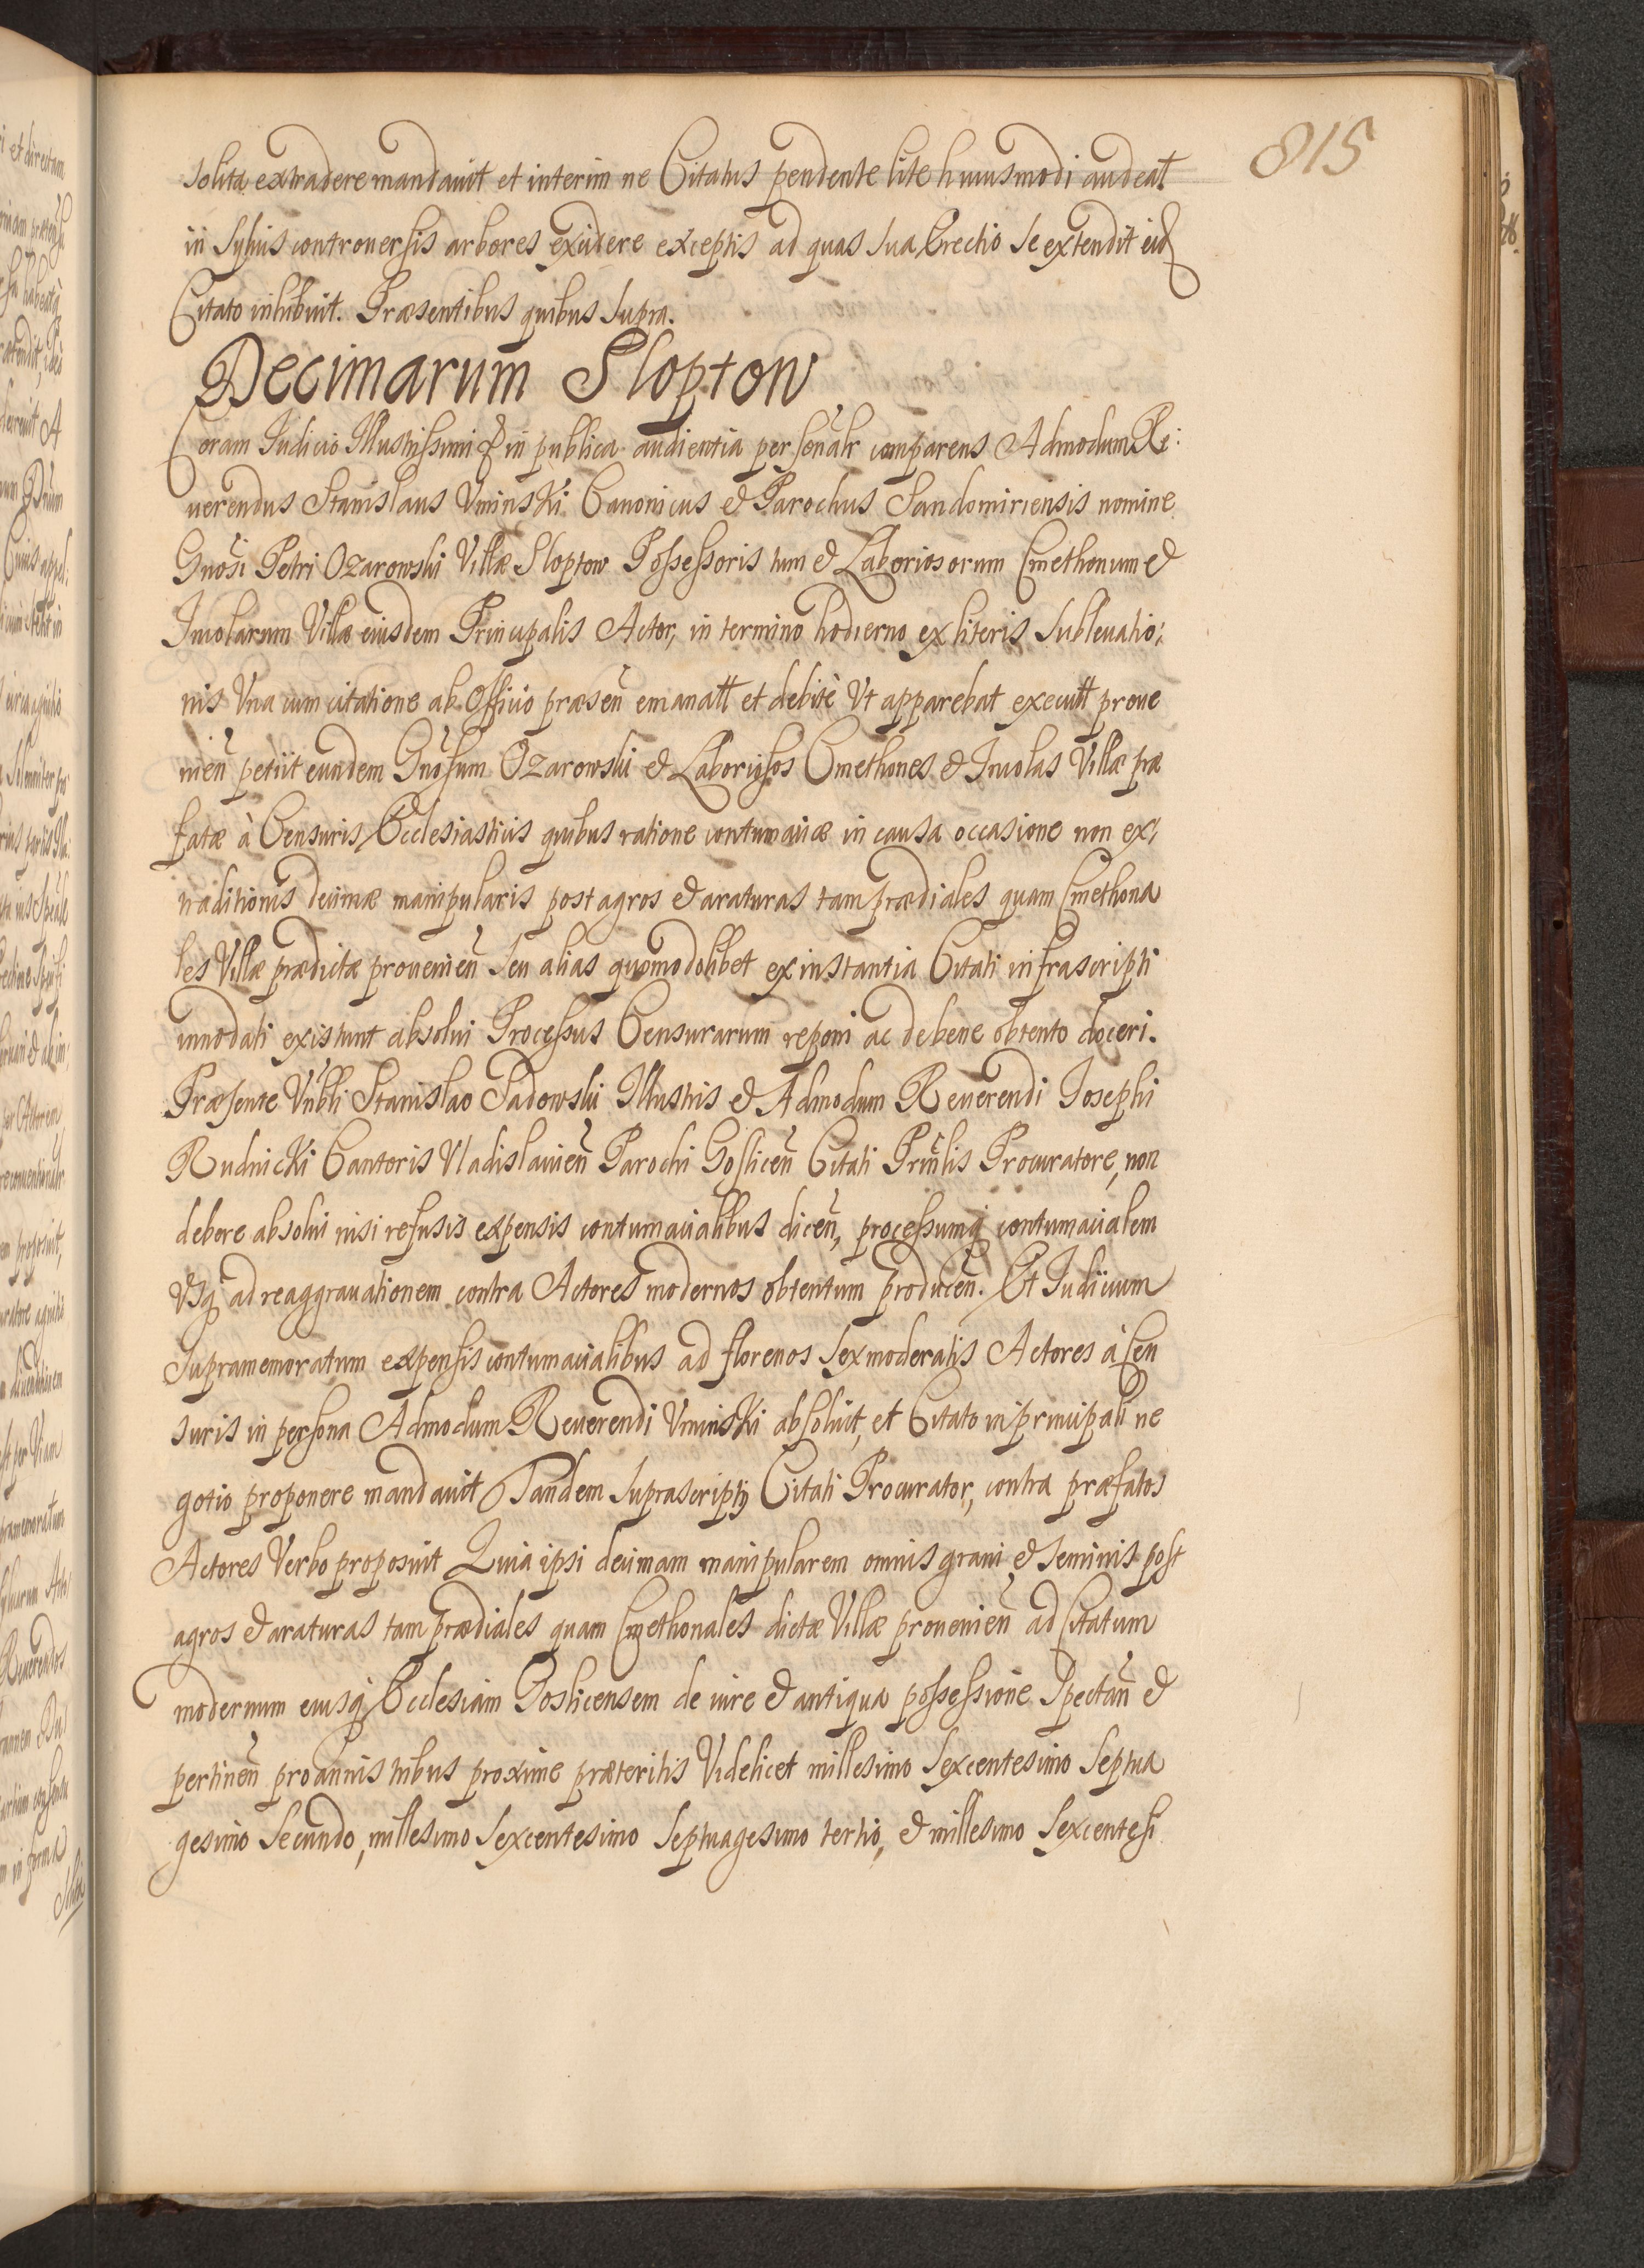 815
solita extradere mandauit et interim ne Citatus pendente lite huiusmodi audeat
in Syluis controuersis arbores exidere exceptis ad quas sua Erectio se extendit eid
Citato inhibuit. Præsentibus quibus supra.
Decimarum Sloptow
Coram Iudicio Illustrissimi & in publica audientia personalr comparens Admodum Re:
uerendus Stanislaus Vminski Canonicus & Parochus Sandomiriensis nomine
Gnosi Petri Ozarowski Villæ Sloptow Possessoris tum & Laboriosorum Cmethonum &
Inolarum Villæ eiusdem Principalis Actor, in termino hodierno ex literis subleuatio:
nis Vna cum citatione ab Officio præsen̄ emanatt et debitè Vt apparebat executt proue
nien̄ petiit eundem Gnosum Ozarowski & Laboriosos Cmethones & Inolas Villæ præ
fatæ à Censuris Ecclesiasticis quibus ratione contumaciæ in causa occasione non ex,
traditionis decimæ manipularis post agros & araturas tam prædiales quam Cmethona
les Villæ prædictæ prouenien̄ seu alias quomodolibet ex instantia Citati infrascripti
innodati existunt absolui Processus Censurarum reponi ac de bene obtento doceri.
Præsente Vnbli Stanislao Sadowski Illustris & Admodum Reuerendi Iosephi
Rudnicki Cantoris Vladislauien̄ Parochi Goslicen̄ Citati Prinlis Procuratore, non
debere absolui nisi refusis expensis contumacialibus dicen̄, processumq contumacialem
Vsq ad reaggrauationem contra Actores modernos obtentum producen̄. Et Iudicium
supramemoratum expensis contumacialibus ad florenos sex moderatis Actores à Cen
suris in persona Admodum Reuerendi Vminski absoluit, et Citato in principali ne
gotio proponere mandauit Tandem suprascripti Citati Procurator, contra præfatos
Actores Verbo proposuit Quia ipsi decimam manipularem omnis grani & seminis post
agros & araturas tam prædiales quam Cmethonales dictæ Villæ prouenien̄ ad Citatum
modernum eiusq Ecclesiam Goslicensem de iure & antiqua possessione spectan̄ &
pertinen̄ pro annis tribus proxime præteritis Videlicet millesimo sexcentesimo septua
gesimo secundo, millesimo sexcentesimo septuagesimo tertio, & millesimo sexcentesi